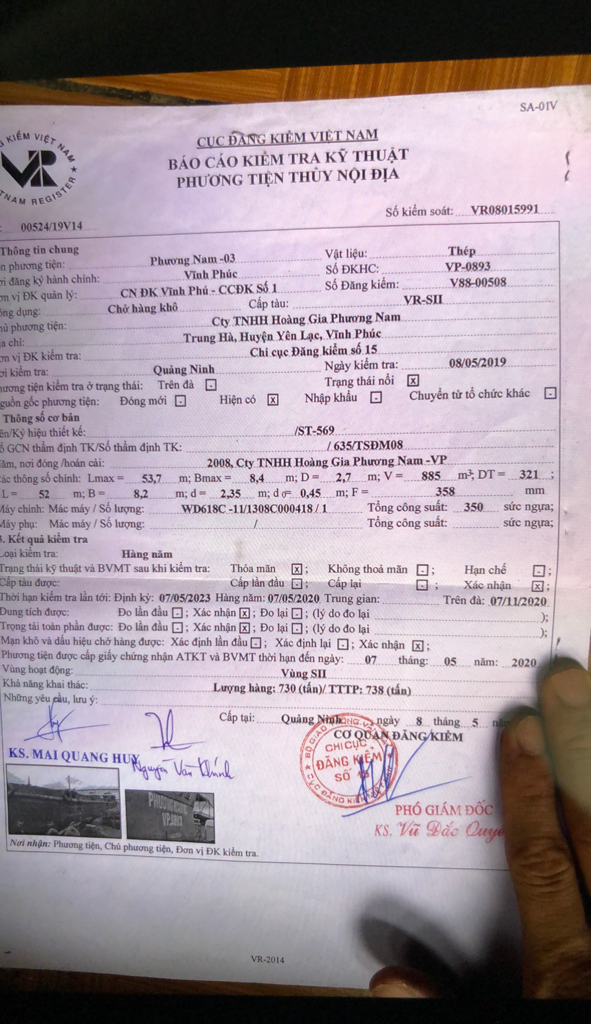 SA-01V
KIỂM VIỆT NAM
VR
REGISTER
CỤC ĐĂNG KIỂM VIỆT NAM
BÁO CÁO KIỂM TRA KỸ THUẬT
PHƯƠNG TIỆN THỦY NỘI ĐỊA
00524/19V14 Số kiểm soát: VR08015991
Thông tin chung
phương tiện: Phương Nam -03 Vật liệu: Thép
đăng ký hành chính: Vĩnh Phúc Số ĐKHC: VP-0893
vị ĐK quản lý: CN ĐK Vĩnh Phú - CCĐK Số 1 Số Đăng kiểm: V88-00508
dụng: Chở hàng khô Cấp tàu: VR-SII
phương tiện: Cty TNHH Hoàng Gia Phương Nam
chỉ: Trung Hà, Huyện Yên Lạc, Vĩnh Phúc
vị ĐK kiểm tra: Chi cục Đăng kiểm số 15
kiểm tra: Quảng Ninh Ngày kiểm tra: 08/05/2019
phương tiện kiểm tra ở trạng thái: Trên đà - Trạng thái nổi x
gốc phương tiện: Đóng mới - Hiện có x Nhập khẩu - Chuyển từ tổ chức khác -
Thông số cơ bản
/Ký hiệu thiết kế: /ST-569
GCN thẩm định TK/Số thẩm định TK: / 635/TSĐM08
nơi đóng /hoán cải: 2008, Cty TNHH Hoàng Gia Phương Nam -VP
thông số chính: Lmax = 53,7 m; Bmax = 8,4 m; D = 2,7 m; V = 885 m³; DT = 321 ;
L = 52 m; B = 8,2 m; d = 2,35 m; d = 0,45 m; F = 358 mm
Máy chính: Mác máy / Số lượng: WD618C -11/1308C000418 / 1 Tổng công suất: 350 sức ngựa;
Máy phụ: Mác máy / Số lượng: / Tổng công suất: sức ngựa;
3. Kết quả kiểm tra
Loại kiểm tra: Hàng năm
Trạng thái kỹ thuật và BVMT sau khi kiểm tra: Thỏa mãn x Không thoả mãn - Hạn chế - ;
Cấp tàu được: Cấp lần đầu - ; Cấp lại - Xác nhận x ;
Thời hạn kiểm tra lần tới: Định kỳ: 07/05/2023 Hàng năm: 07/05/2020 Trung gian: Trên đà: 07/11/2020
Dung tích được: Đo lần đầu - ; Xác nhận x ; Đo lại - ; (lý do đo lại );
Trọng tải toàn phần được: Đo lần đầu - ; Xác nhận x ; Đo lại - ; (lý do đo lại );
Mạn khô và dấu hiệu chở hàng được: Xác định lần đầu - ; Xác định lại - ; Xác nhận x ;
Phương tiện được cấp giấy chứng nhận ATKT và BVMT thời hạn đến ngày: 07 tháng: 05 năm: 2020
Vùng hoạt động: Vùng SII
Khả năng khai thác: Lượng hàng: 730 (tấn)/ TTTP: 738 (tấn)
Những yêu cầu, lưu ý:
Cấp tại: Quảng Ninh ngày 8 tháng 5
CƠ QUAN ĐĂNG KIỂM
CHI CỤC
ĐĂNG KIỂM
SỐ
KS. MAI QUANG HUY
Nguyễn Văn Khánh
PHÓ GIÁM ĐỐC
KS. Vũ Đắc
PHƯƠNG
Nơi nhận: Phương tiện, Chủ phương tiện, Đơn vị ĐK kiểm tra.
VR-2014